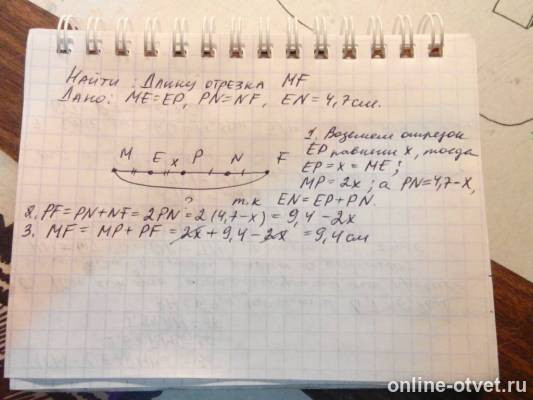 Найти : Длину отрезка MF
Дано: ME=EP, PN=NF, EN=4,7см.
1. Возьмем отрезок
EP равным x, тогда
EP=x=ME;
MP=2x; а PN=4,7-x,
т.к EN=EP+PN.
M E x P N F
?
2. PF=PN+NF=2PN=2(4,7-x)=9,4-2x
3. MF=MP+PF=2x+9,4-2x=9,4см
online-otvet.ru